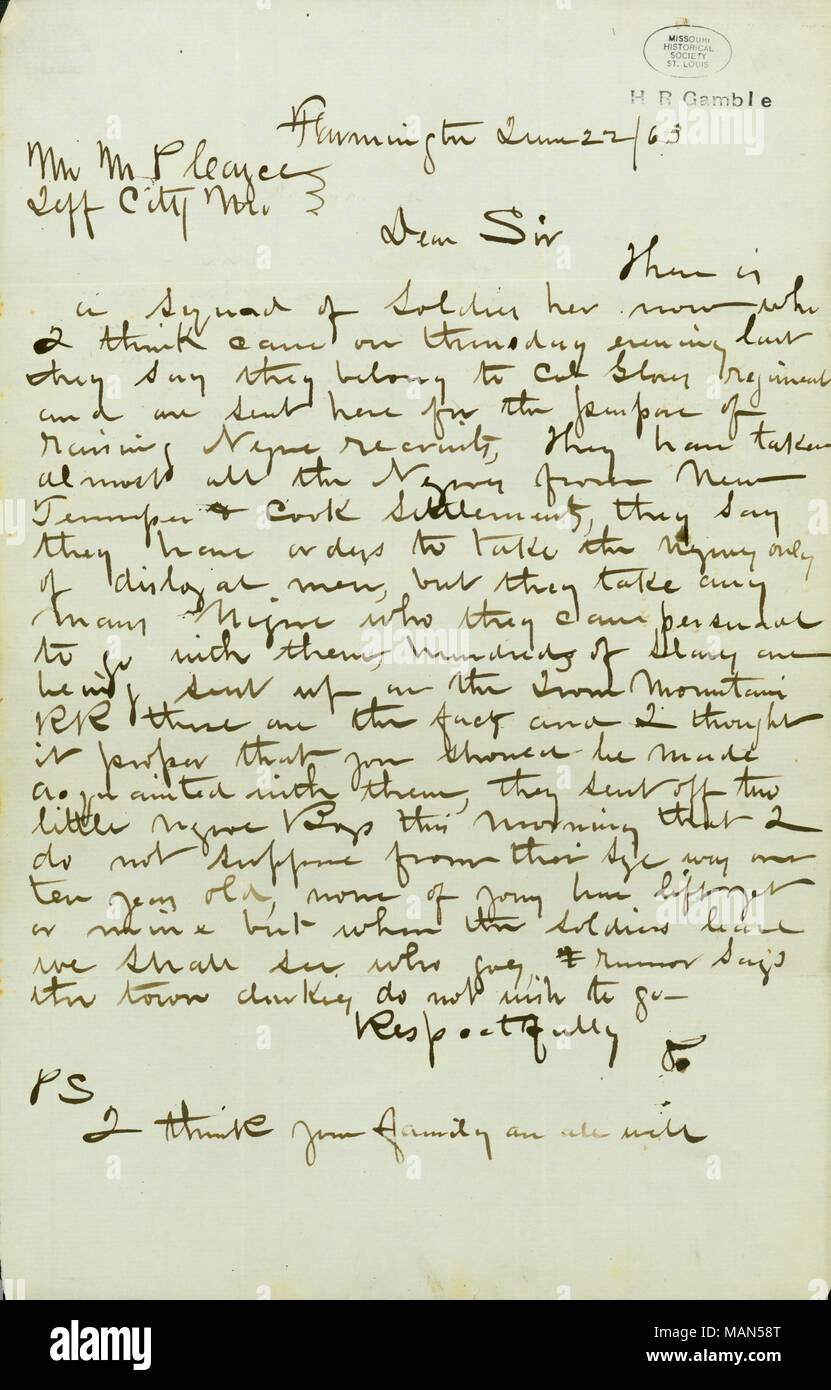 MISSOURI
HISTORICAL
SOCIETY
ST. LOUIS
H R Gamble
Farmington June 22/63
Mr M P Cayce
Jeff City Mo
Dear Sir
There is
a squad of Soldiers her now who
I think came on thursday evening last
they say they belong to Col Glover regiment
and are sent here for the purpose of
raising Negroe recruits, they have taken
almost all the Negroes from New
Tennessee & Cook Settlements, they say
they have orders to take the Negroes only
of disloyal men, but they take any
mans Nigroe who they can persuade
to go with them, hundreds of Slaves are
being sent up on the Iron Mountain
RR these are the facts and I thought
it proper that you should be made
acquainted with them, they sent off two
little Negroe Boys this morning that I
do not suppose from their size was over
ten years old, none of yours have left yet
or mine but when the soldiers leave
we shall see who goes, & rumor says
the town darkies do not wish to go—
Respectfully
PS
I think your family are all well
alamy
Image ID: MAN58T
www.alamy.com